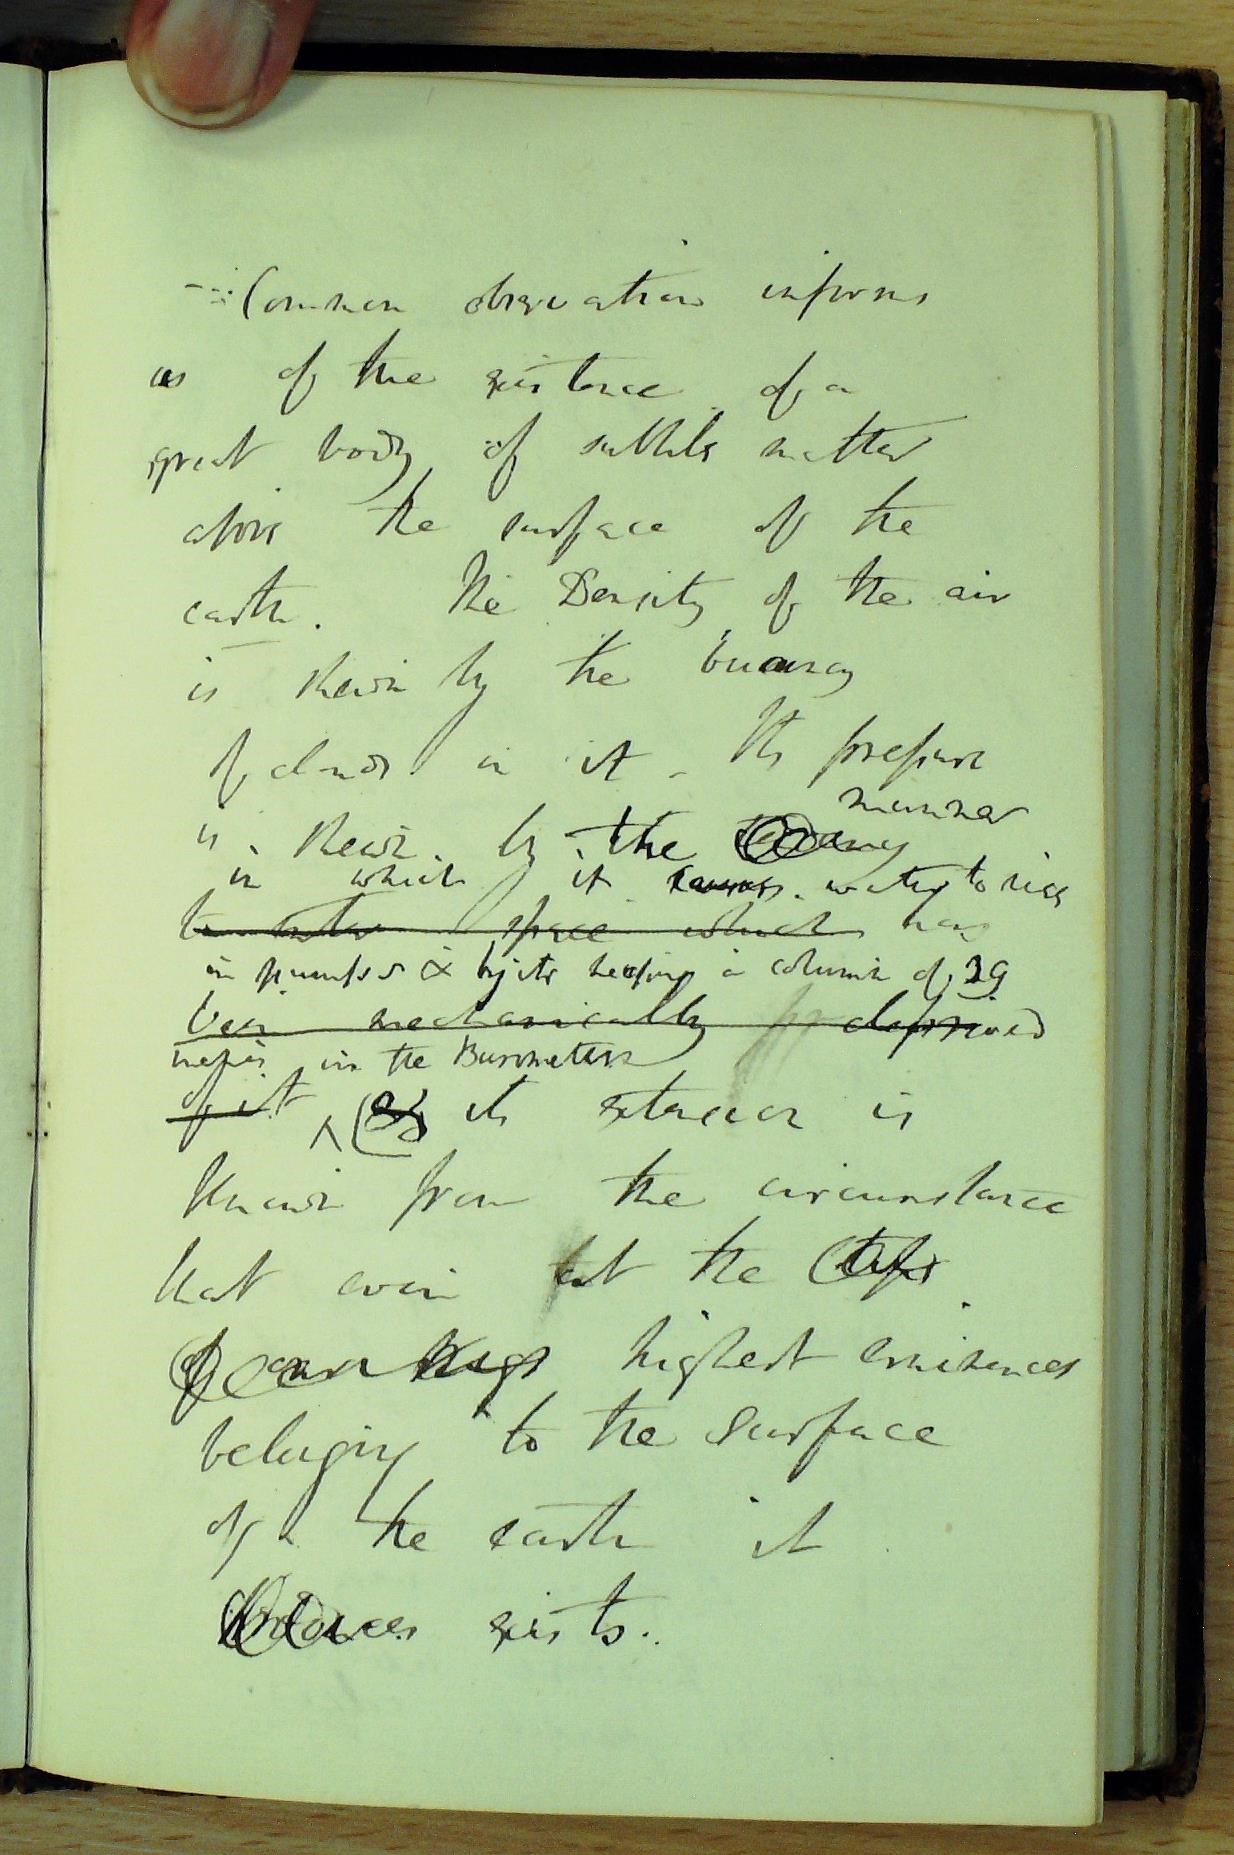 Common observation informs
us of the existence of a
great body of subtile matter
above the surface of the
earth. The Density of the air
is shewn by the buoancy
of clouds in it - Its pressure
manner
is shewn by the
in which it causes water to rise
to enter space which has
in pumps & by its keeping a column of 29
been mechanically deprived
inches in the Barometer
of it its extension is
known from the circumstance
that even at the tops
of our highest eminences
belonging to the Surface
of the earth it
exists.